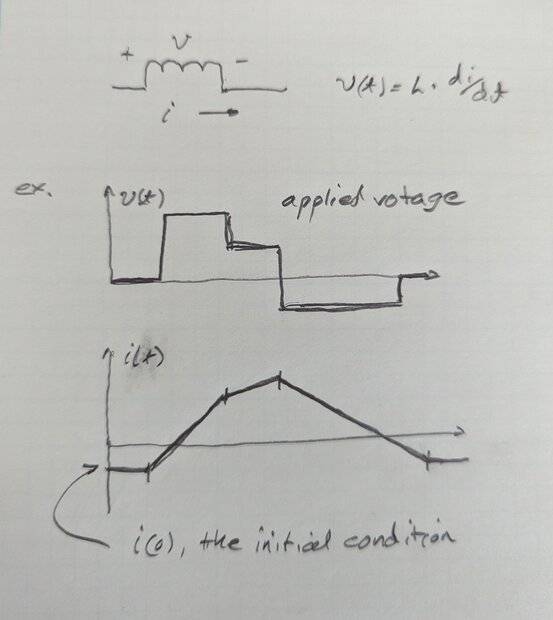 + v -
i →
v(t) = L · di/dt
ex.
v(t)
applied votage
i(t)
i(0), the initial condition